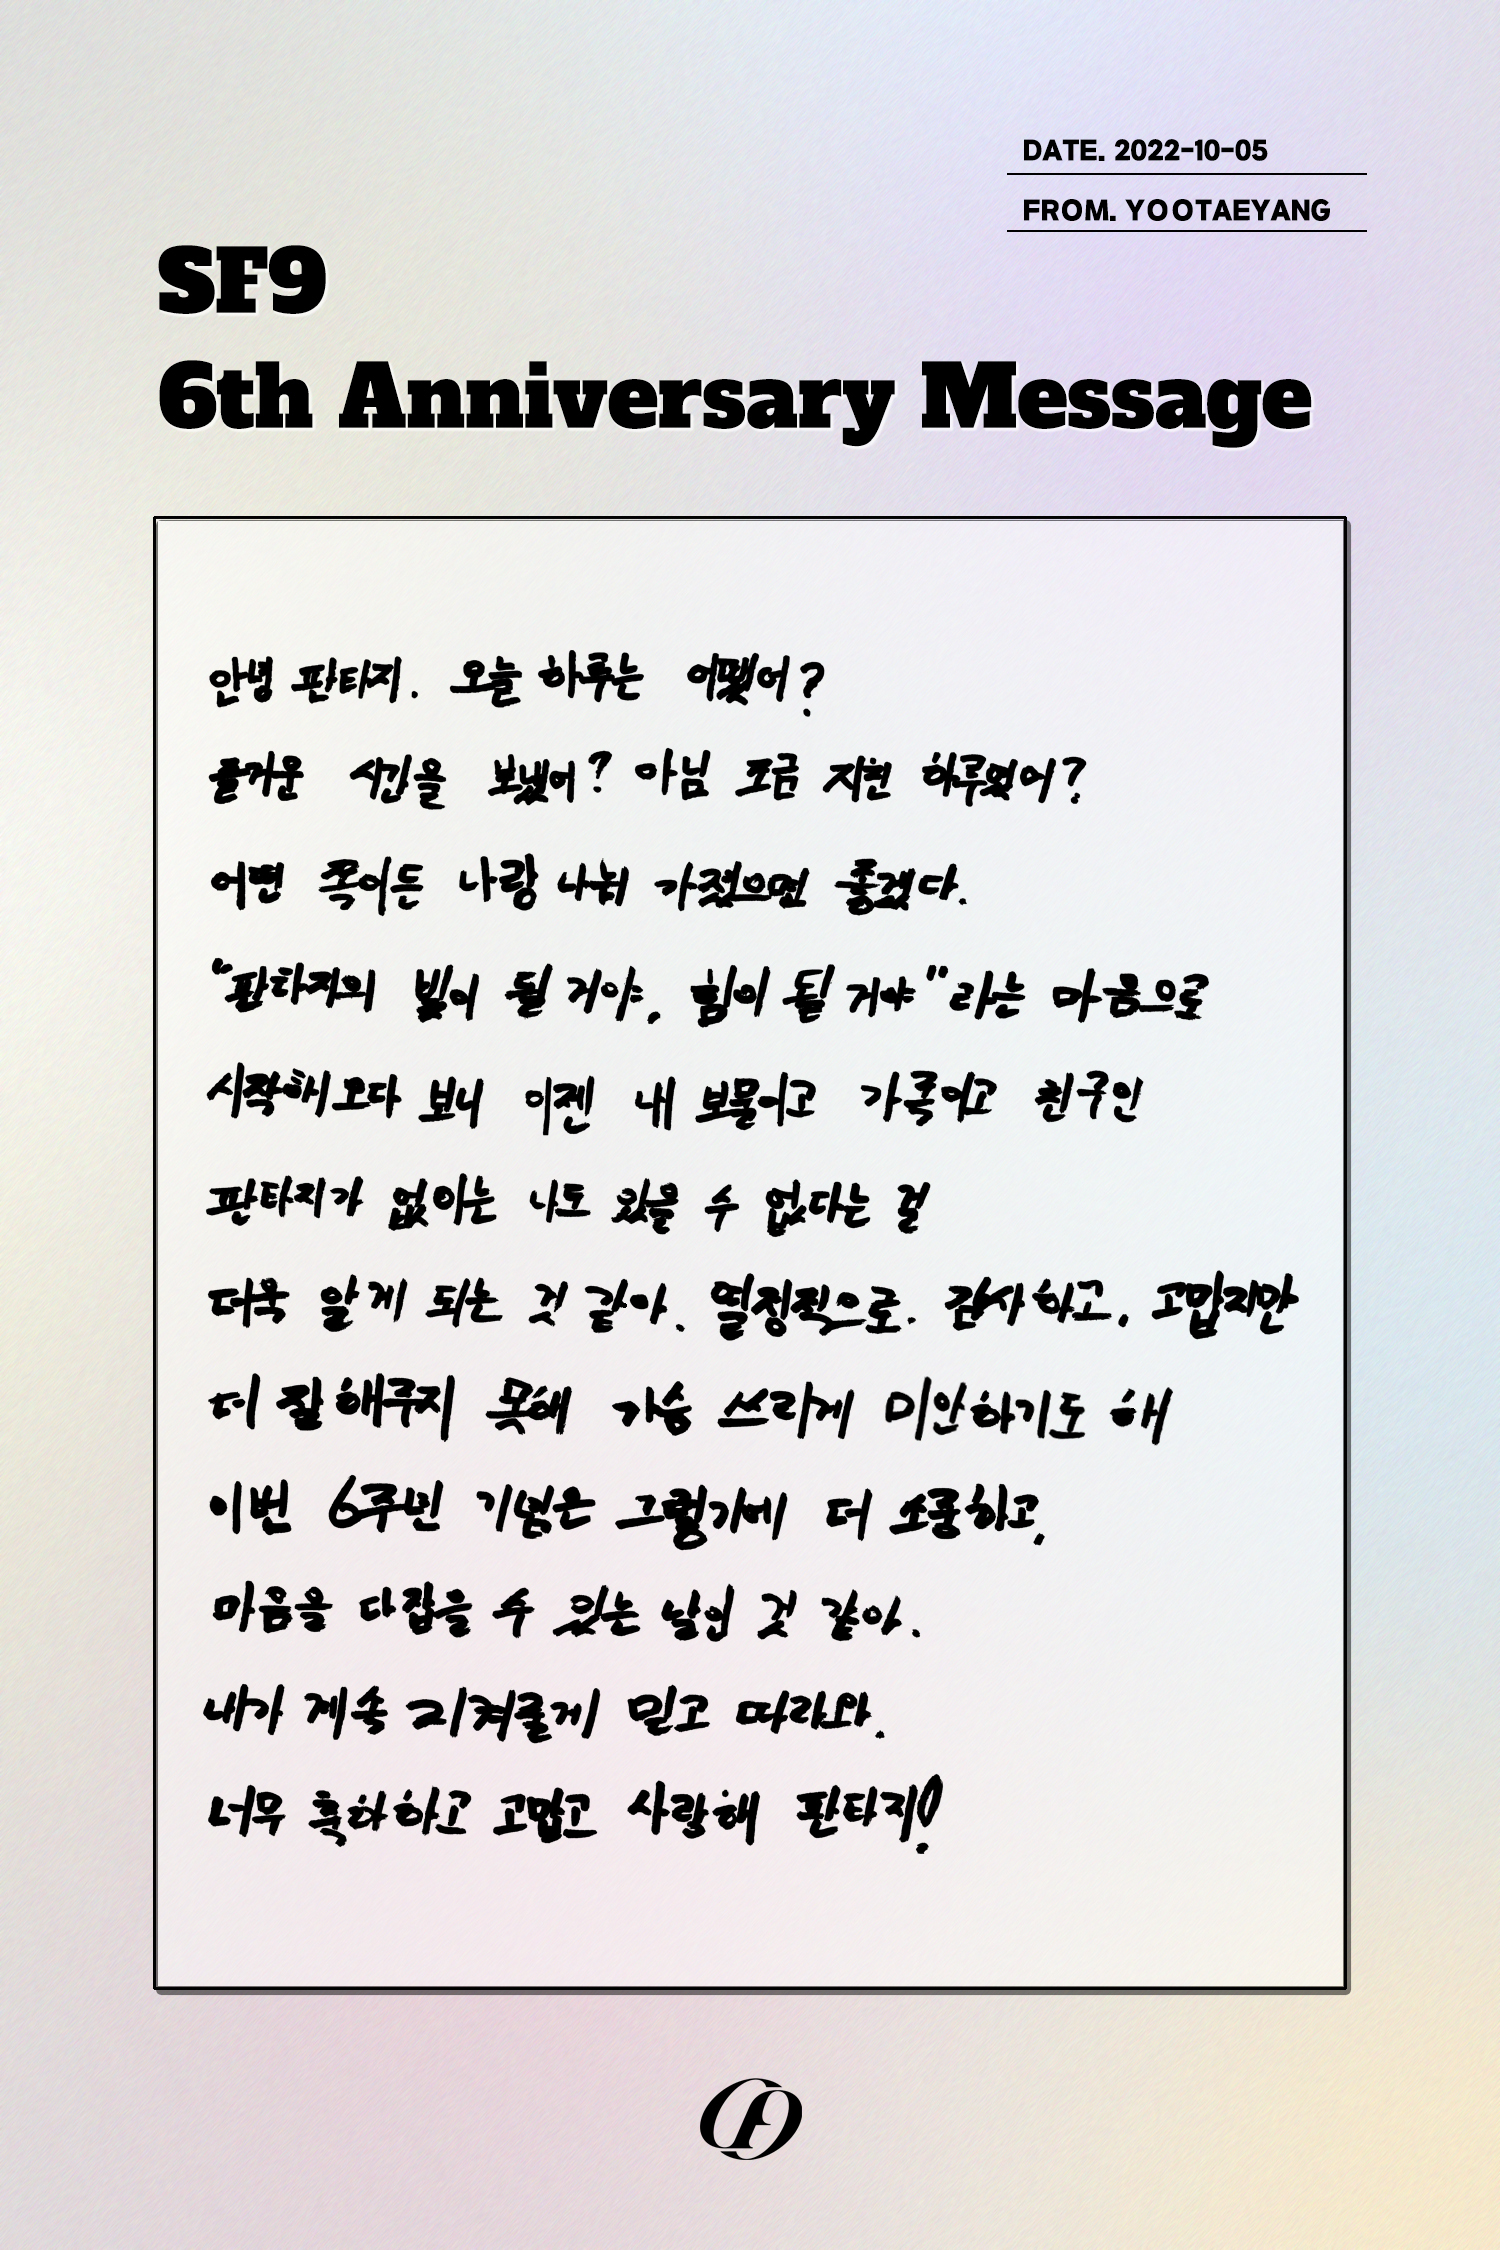 DATE. 2022-10-05
FROM. YOOTAEYANG
SF9
6th Anniversary Message
안녕 판타지. 오늘 하루는 어땠어?
즐거운 시간을 보냈어? 아님 조금 지친 하루였어?
어떤 쪽이든 나랑 나눠 가졌으면 좋겠다.
"판타지의 빛이 될 거야, 힘이 될 거야"라는 마음으로
시작해오다 보니 이젠 내 보물이고 가족이고 친구인
판타지가 없이는 나도 있을 수 없다는 걸
더욱 알게 되는 것 같아. 열정적으로. 감사하고, 고맙지만
더 잘해주지 못해 가슴 쓰라리게 미안하기도 해
이번 6주년 기념은 그렇기에 더 소중하고,
마음을 다잡을 수 있는 날인 것 같아.
내가 계속 지켜줄게 믿고 따라와.
너무 축하하고 고맙고 사랑해 판타지!